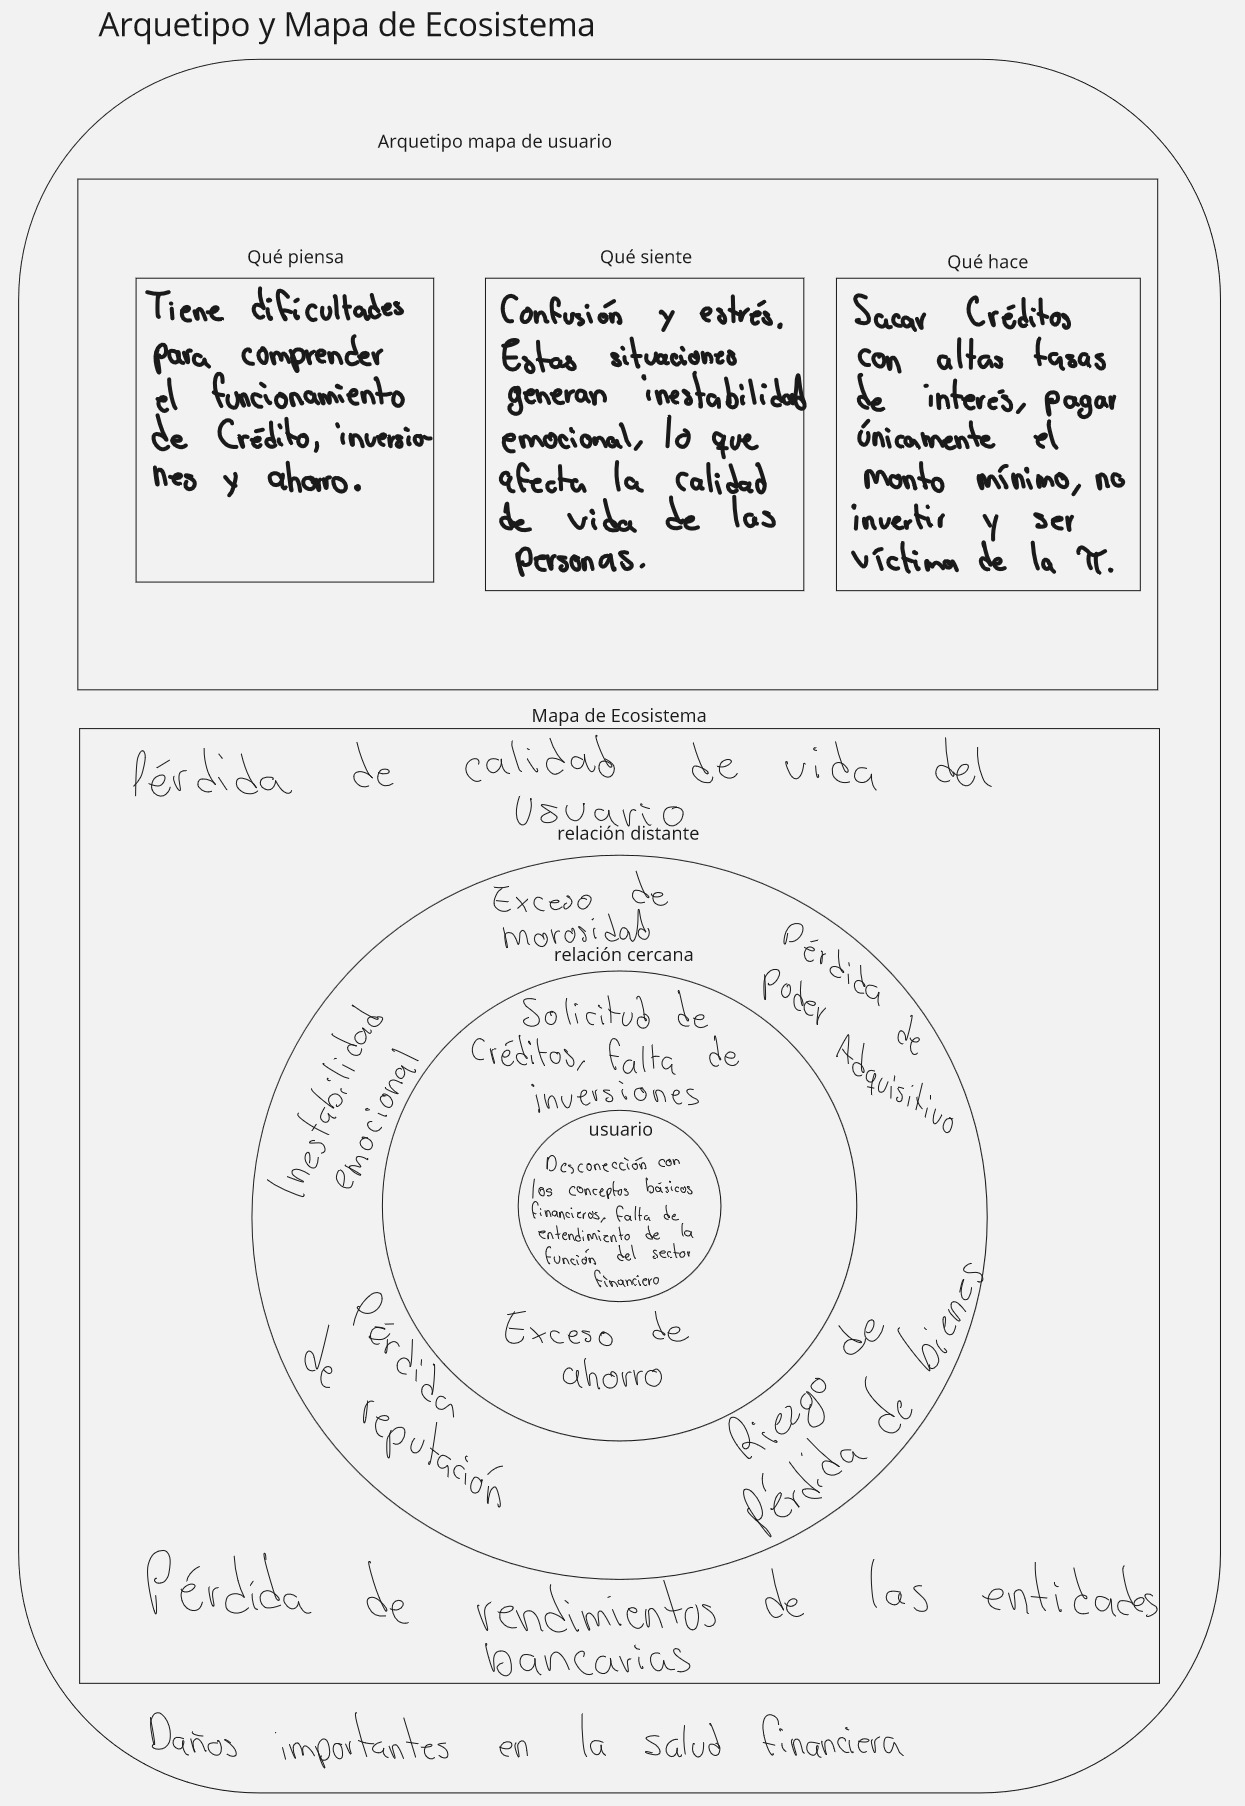 Arquetipo y Mapa de Ecosistema
Arquetipo mapa de usuario
Qué piensa
Tiene dificultades
para comprender
el funcionamiento
de Crédito, inversio-
nes y ahorro.
Qué siente
Confusión y estrés.
Estas situaciones
generan inestabilidad
emocional, lo que
afecta la calidad
de vida de las
personas.
Qué hace
Sacar Créditos
con altas tasas
de interés, pagar
únicamente el
monto mínimo, no
invertir y ser
víctima de la π.
Mapa de Ecosistema
Pérdida de calidad de vida del
Usuario
relación distante
Exceso de
morosidad
Pérdida de
Poder Adquisitivo
relación cercana
Solicitud de
Créditos, falta de
inversiones
Inestabilidad
emocional
usuario
Desconección con
los conceptos básicos
financieros, falta de
entendimiento de la
función del sector
financiero
Exceso de
ahorro
Pérdida
de reputación
Riezgo de
Pérdida de bienes
Pérdida de rendimientos de las entidades
bancarias
Daños importantes en la salud financiera